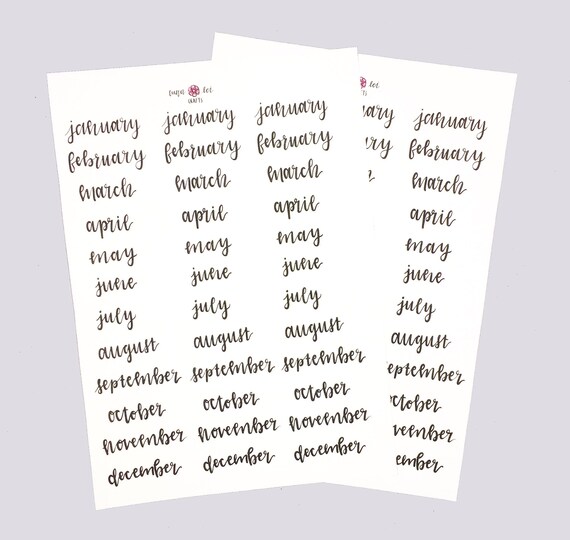 january january january january
february february february february
march march march march
april april april april
may may may may
june june june june
july july july july
august august august august
september september september eptember
october october october ctober
november november november vember
december december december ember